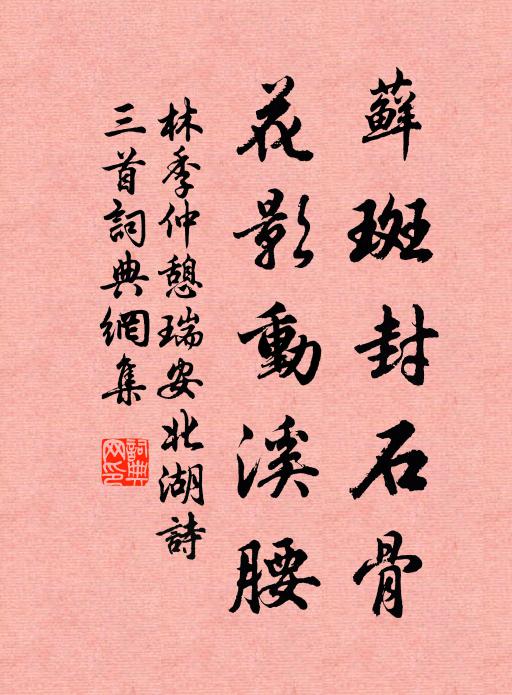 蘚斑封石骨
花影動溪腰
林季仲憩瑞安北湖詩
三首詞典網集
詞典網印